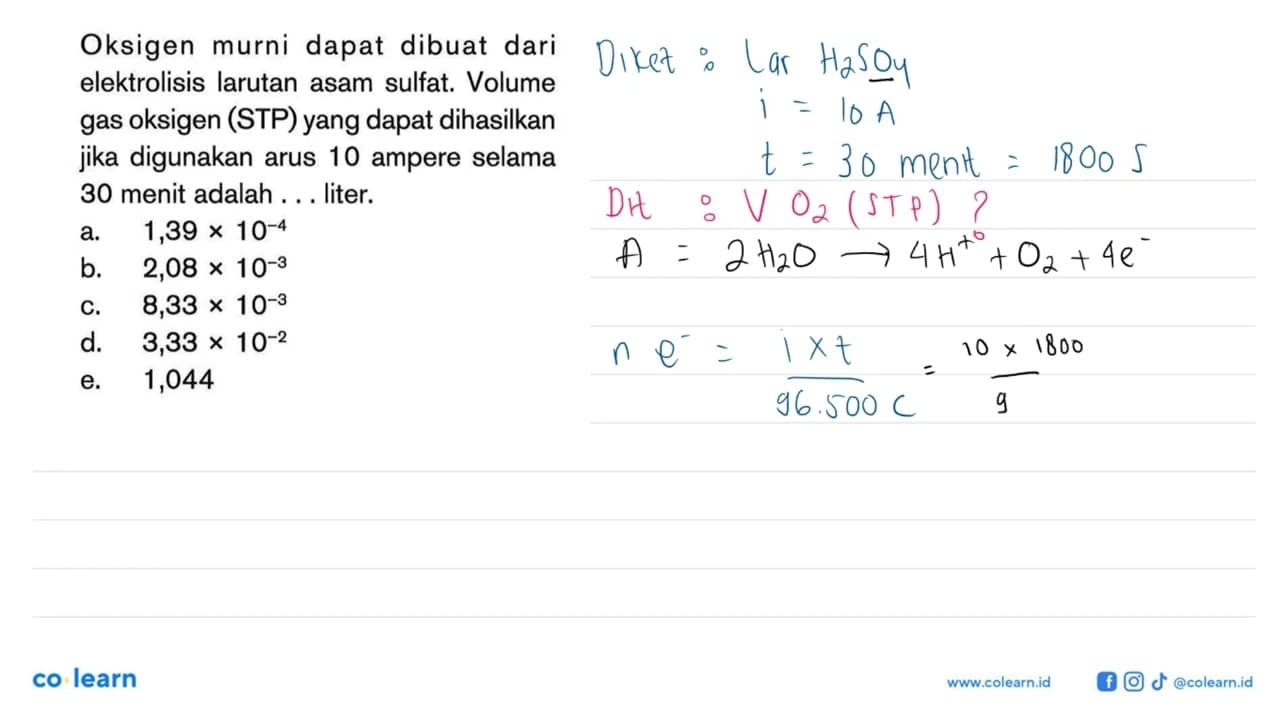 Oksigen murni dapat dibuat dari
elektrolisis larutan asam sulfat. Volume
gas oksigen (STP) yang dapat dihasilkan
jika digunakan arus 10 ampere selama
30 menit adalah . . . liter.
a. 1,39 × 10⁻⁴
b. 2,08 × 10⁻³
c. 8,33 × 10⁻³
d. 3,33 × 10⁻²
e. 1,044
Diket : Lar H₂SO₄
i = 10 A
t = 30 menit = 1800 S
Dit : V O₂ (STP) ?
A = 2H₂O → 4H⁺ + O₂ + 4e⁻
n e⁻ = i × t / 96.500 C = 10 × 1800 / 9
co learn
www.colearn.id
@colearn.id